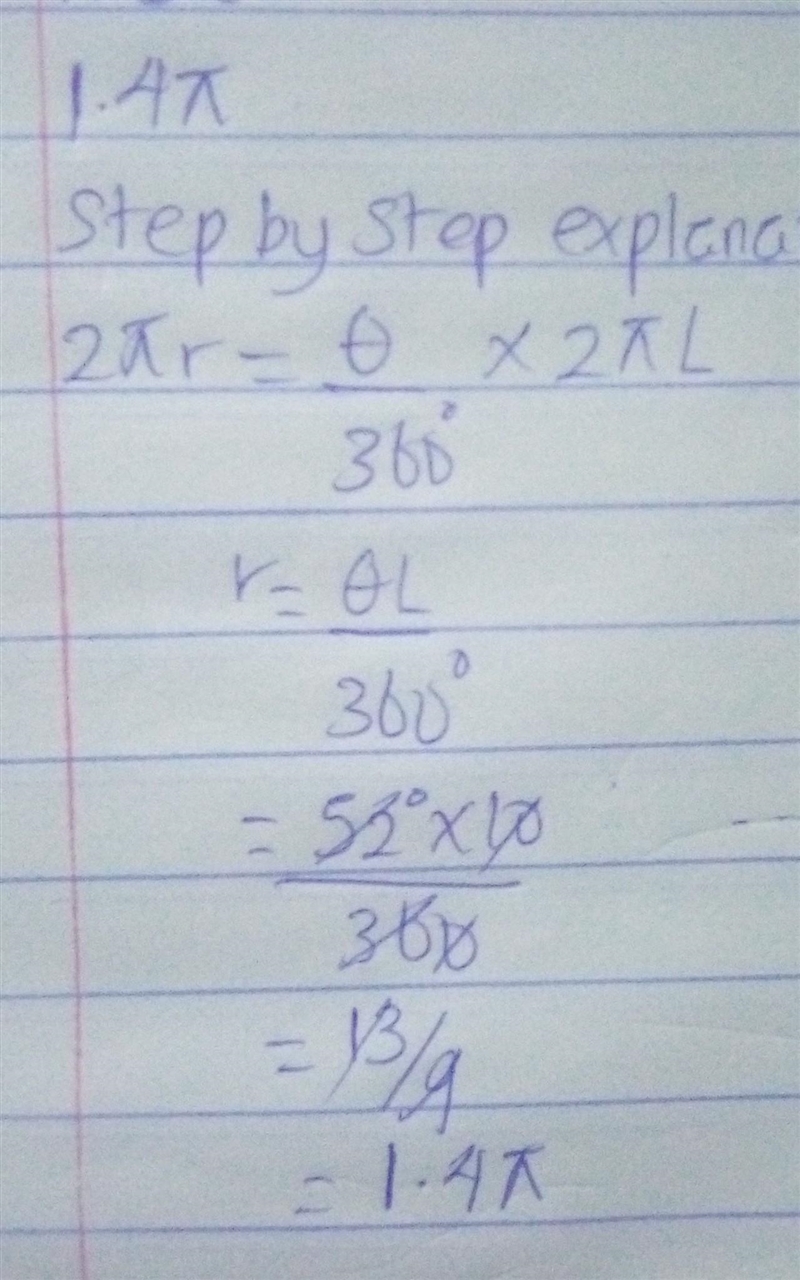 1.4π
Step by step explana
2πr = θ × 2πL
360°
r = θL
360°
= 52° × 10
360
= 13/9
= 1.4π